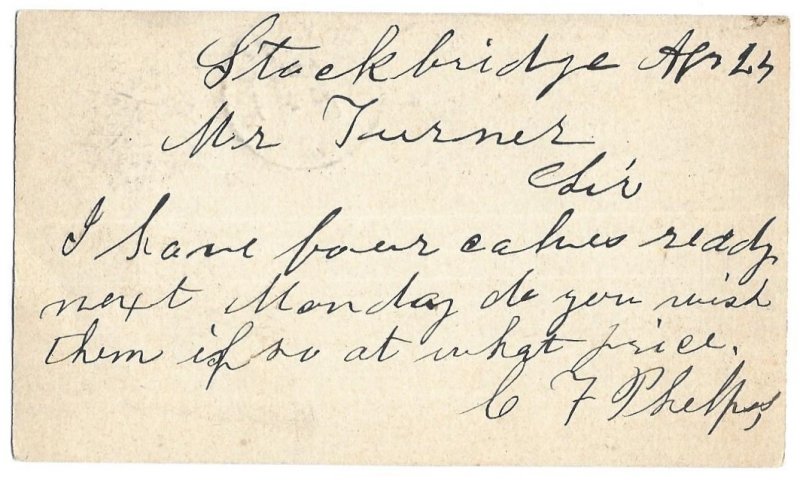 Stockbridge Apr 25
Mr Turner
Sir
I have four calves ready
next Monday do you wish
them if so at what price.
C F Phelps,